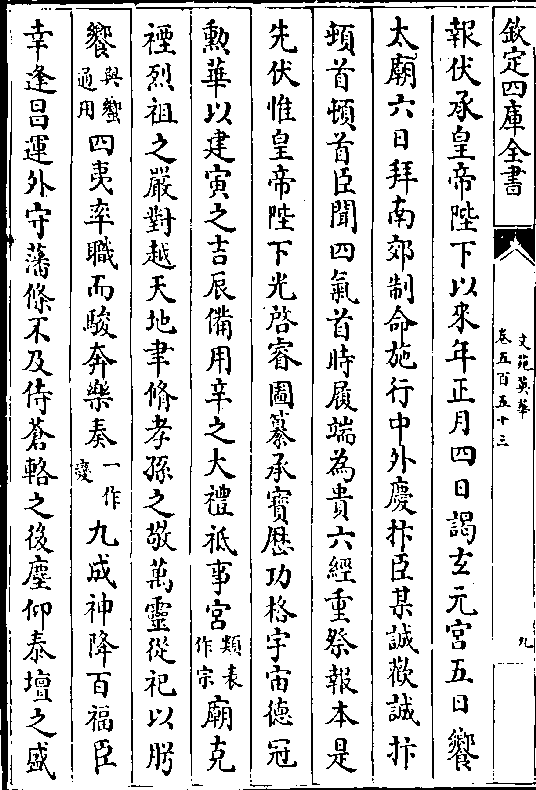 欽定四庫全書
文苑英華
卷五百五十三
九
報伏承皇帝陛下以來年正月四日謁玄元宮五日饗
太廟六日拜南郊制命施行中外慶抃臣某誠歡誠抃
頓首頓首臣聞四氣首時履端為貴六經重祭報本是
先伏惟皇帝陛下光啓睿圖纂承寶歷功格宇宙德冠
勲華以建寅之吉辰備用辛之大禮祗事宮類表作宗廟克
禋烈祖之嚴對越天地聿脩孝孫之敬萬靈從祀以肹
饗與蠁通用四夷率職而駿奔樂奏一作變九成神降百福臣
幸逢昌運外守藩條不及侍蒼輅之後塵仰泰壇之盛